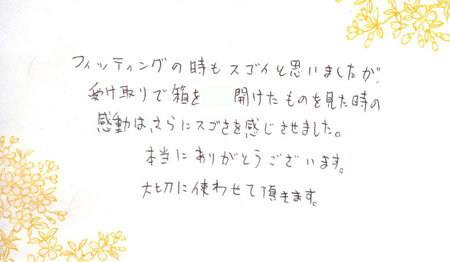 フィッティングの時もスゴイと思いましたが、
受け取りで箱を 開けたものを見た時の
感動は、さらにスゴさを感じさせました。
本当にありがとうございます。
大切に使わせて頂きます。